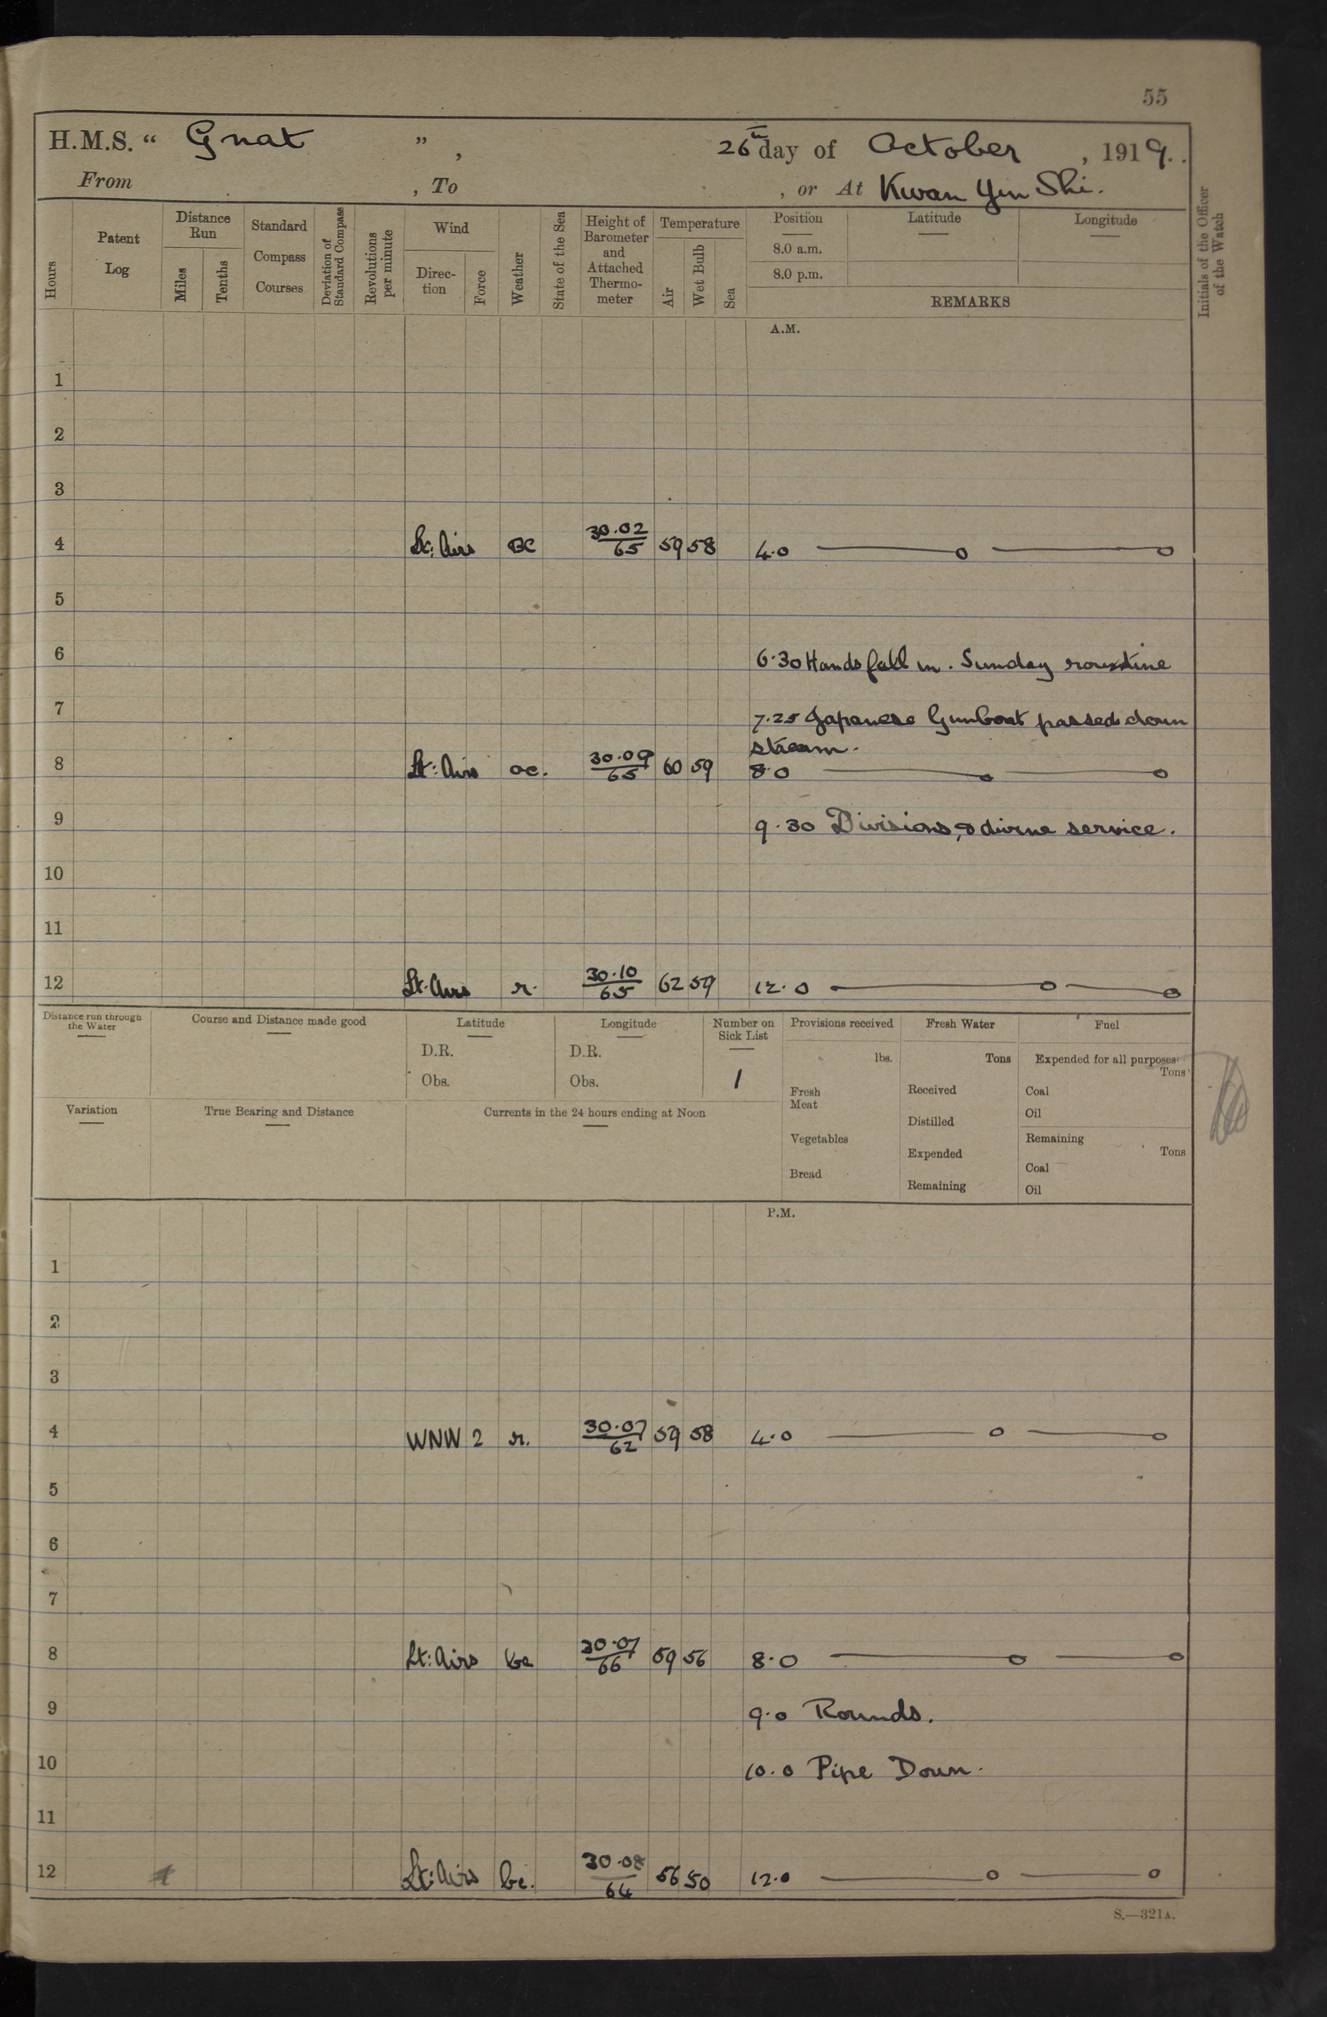 55
H.M.S. " Gnat ", 26th day of October, 1919.
From , To , or At Kwan Yin Shi.
Hours
Patent Log
Distance Run
Miles
Tenths
Standard Compass Courses
Deviation of Standard Compass
Revolutions per minute
Wind
Direction
Force
Weather
State of the Sea
Height of Barometer and Attached Thermometer
Temperature
Air
Wet Bulb
Sea
Position
8.0 a.m.
8.0 p.m.
Latitude
Longitude
REMARKS
Initials of the Officer of the Watch
A.M.
1
2
3
4 Lt: Airs 30.02/65 59 58 4.0
5
6 6.30 Hands fall in. Sunday routine
7 7.25 Japanese Gunboat passed down
stream.
8 Lt: Airs oc. 30.09/65 60 59 8.0
9 9.30 Divisions & divine service.
10
11
12 Lt. Airs r. 30.10/65 62 59 12.0
Distance run through the Water
Course and Distance made good
Latitude
D.R.
Obs.
Longitude
D.R.
Obs.
Number on Sick List
1
Provisions received
lbs.
Fresh Meat
Vegetables
Bread
Fresh Water
Tons
Received
Distilled
Expended
Remaining
Fuel
Expended for all purposes
Tons
Coal
Oil
Remaining
Tons
Coal
Oil
Variation
True Bearing and Distance
Currents in the 24 hours ending at Noon
P.M.
1
2
3
4 WNW 2 r. 30.07/62 59 58 4.0
5
6
7
8 Lt: Airs bc 30.07/66 59 56 8.0
9 9.0 Rounds.
10 10.0 Pipe Down.
11
12 Lt: Airs bc. 30.08/64 56 50 12.0
S.—321A.